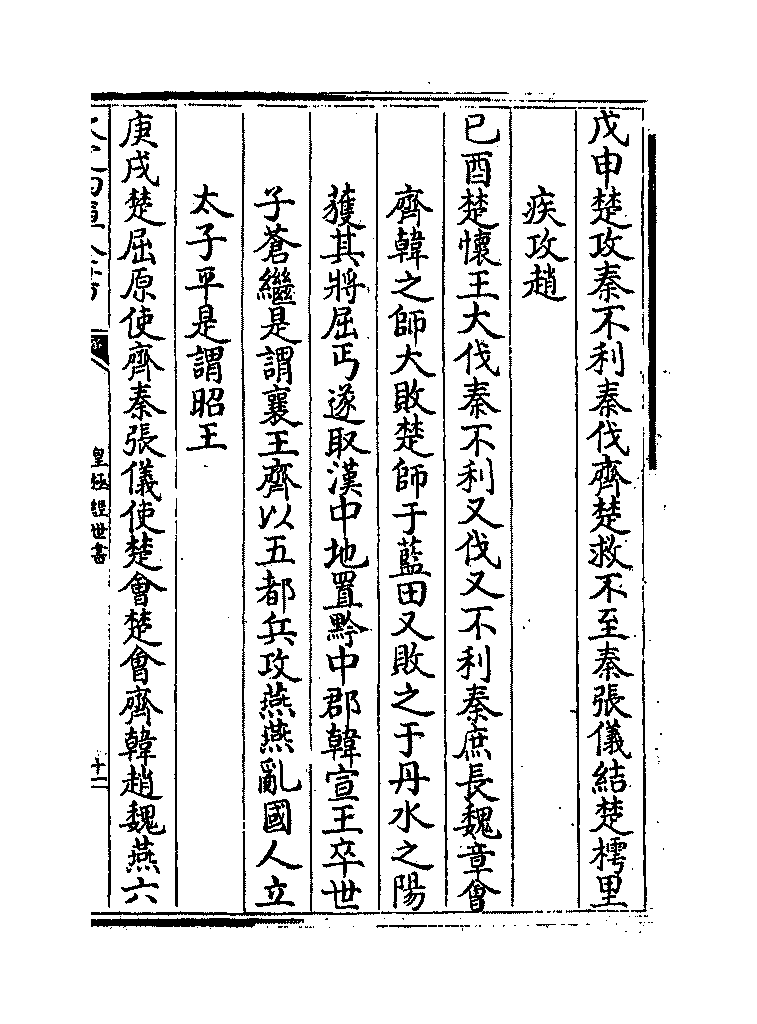 戊申楚攻秦不利秦伐齊楚救不至秦張儀結楚樗里
疾攻趙
已酉楚懷王大伐秦不利又伐又不利秦庶長魏章會
齊韓之師大敗楚師于藍田又敗之于丹水之陽
獲其將屈丐遂取漢中地置黔中郡韓宣王卒世
子蒼繼是謂襄王齊以五都兵攻燕燕亂國人立
太子平是謂昭王
庚戌楚屈原使齊秦張儀使楚會楚會齊韓趙魏燕六
皇極經世書
十二